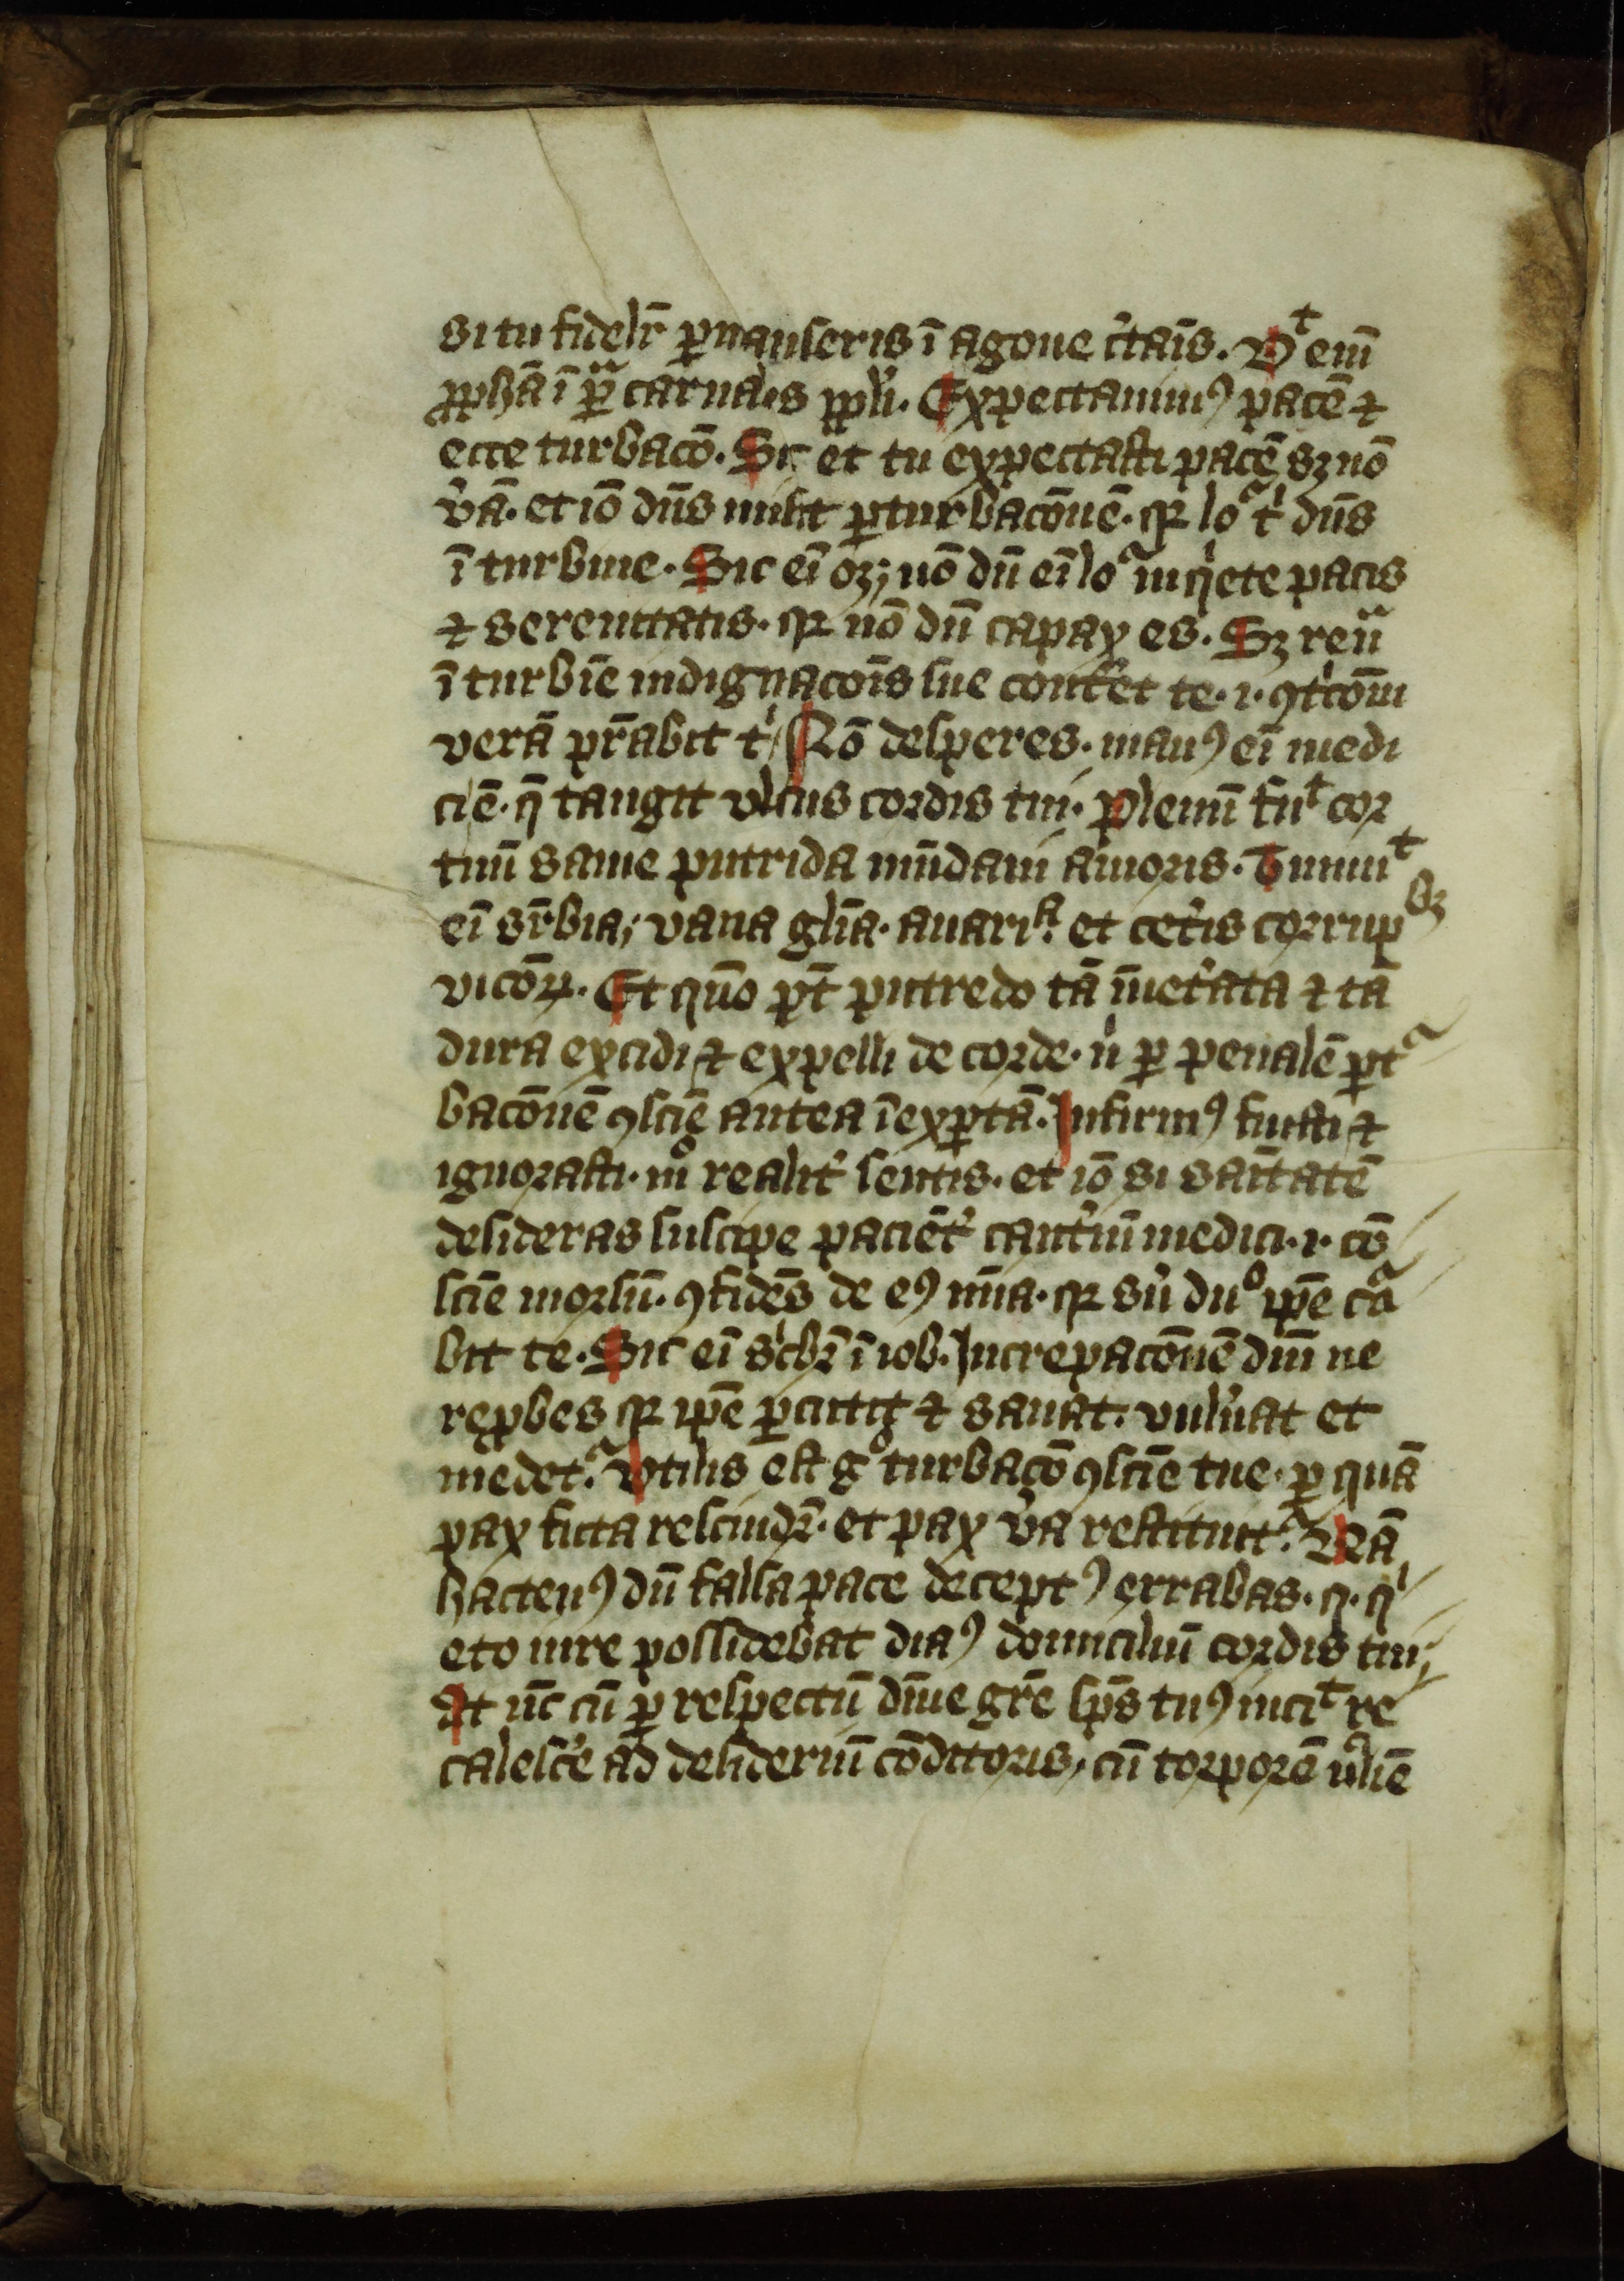 si tu fidelr̄ ꝑmanseris ī agone c̓taīs. Dᵗ enī
ꝓphā ī ꝑᵃ carnalis ppl̓i. Expectauimꝰ pacē ⁊
ecce turbacō. Sic et tu expectasti pacē sꝫ nō
v̓ā. et iō dn̄s misit ꝑturbacōnē. qꝛ loᵃ tⁱ dn̄s
ī turbine. Sic eī oꝫ; nō dū eī loᵃ in qⁱete pacis
⁊ serenitatis. qꝛ nō dū capax es. Sꝫ reuᵃ
ī turbīe indignacōīs sue cont̓et te. ı. ꝯtⁱcōm
verā pr̄abit tⁱ / Nō desperes. manꝰ eī medi
ciē. q̄ tangit vlcus cordis tui. plenū fuᵗ cor
tuū sanie putrida mūdani amoris. Tumuᵗ
eī sr̄bia; vana gl̄ia. auariᵃ. et cet̓is corrupᵇꝫ
vicōꝝ. Et quō pt̄ putredo tā īuet̓ata ⁊ tā
dura excidi ⁊ expelli de corde. nⁱ ꝑ penalē ꝑtᵃ
bacōnē ꝯsciē antea īexꝑtā. Infirmꝰ fuisti ⁊
ignorasti. mº realit̓ sentis. et iō si saītatē
desideras suscipe paciēt̓ caut̓iū medici. ı. cō
sciē morsū. ꝯfidēs de eꝰ mīa. qꝛ sⁱ duº ip̄e cᵃ
bit te. Sic eī scⁱbꝛ̄ ī iob. Increpacōnē dnī ne
reꝓbes qꝛ ip̄e ꝑcutit ⁊ sanat. vuln̓at et
medetᵃ. Vtilis est gº turbacō ꝯsciē tue. ꝑ quā
pax ficta rescindꝛ̄. et pax v̓a restituitᵃ. Nā
hactenꝰ dū falsa pace deceptꝰ errabas. q. qⁱ
eto iure possidebat diaꝰ domiciliū cordis tui;
At nūc cū ꝑ respectū dīne gr̄e sp̄s tuꝰ inciᵗ re
calesc̓e ad desideriū cōditoris, cū torporē v̓liē